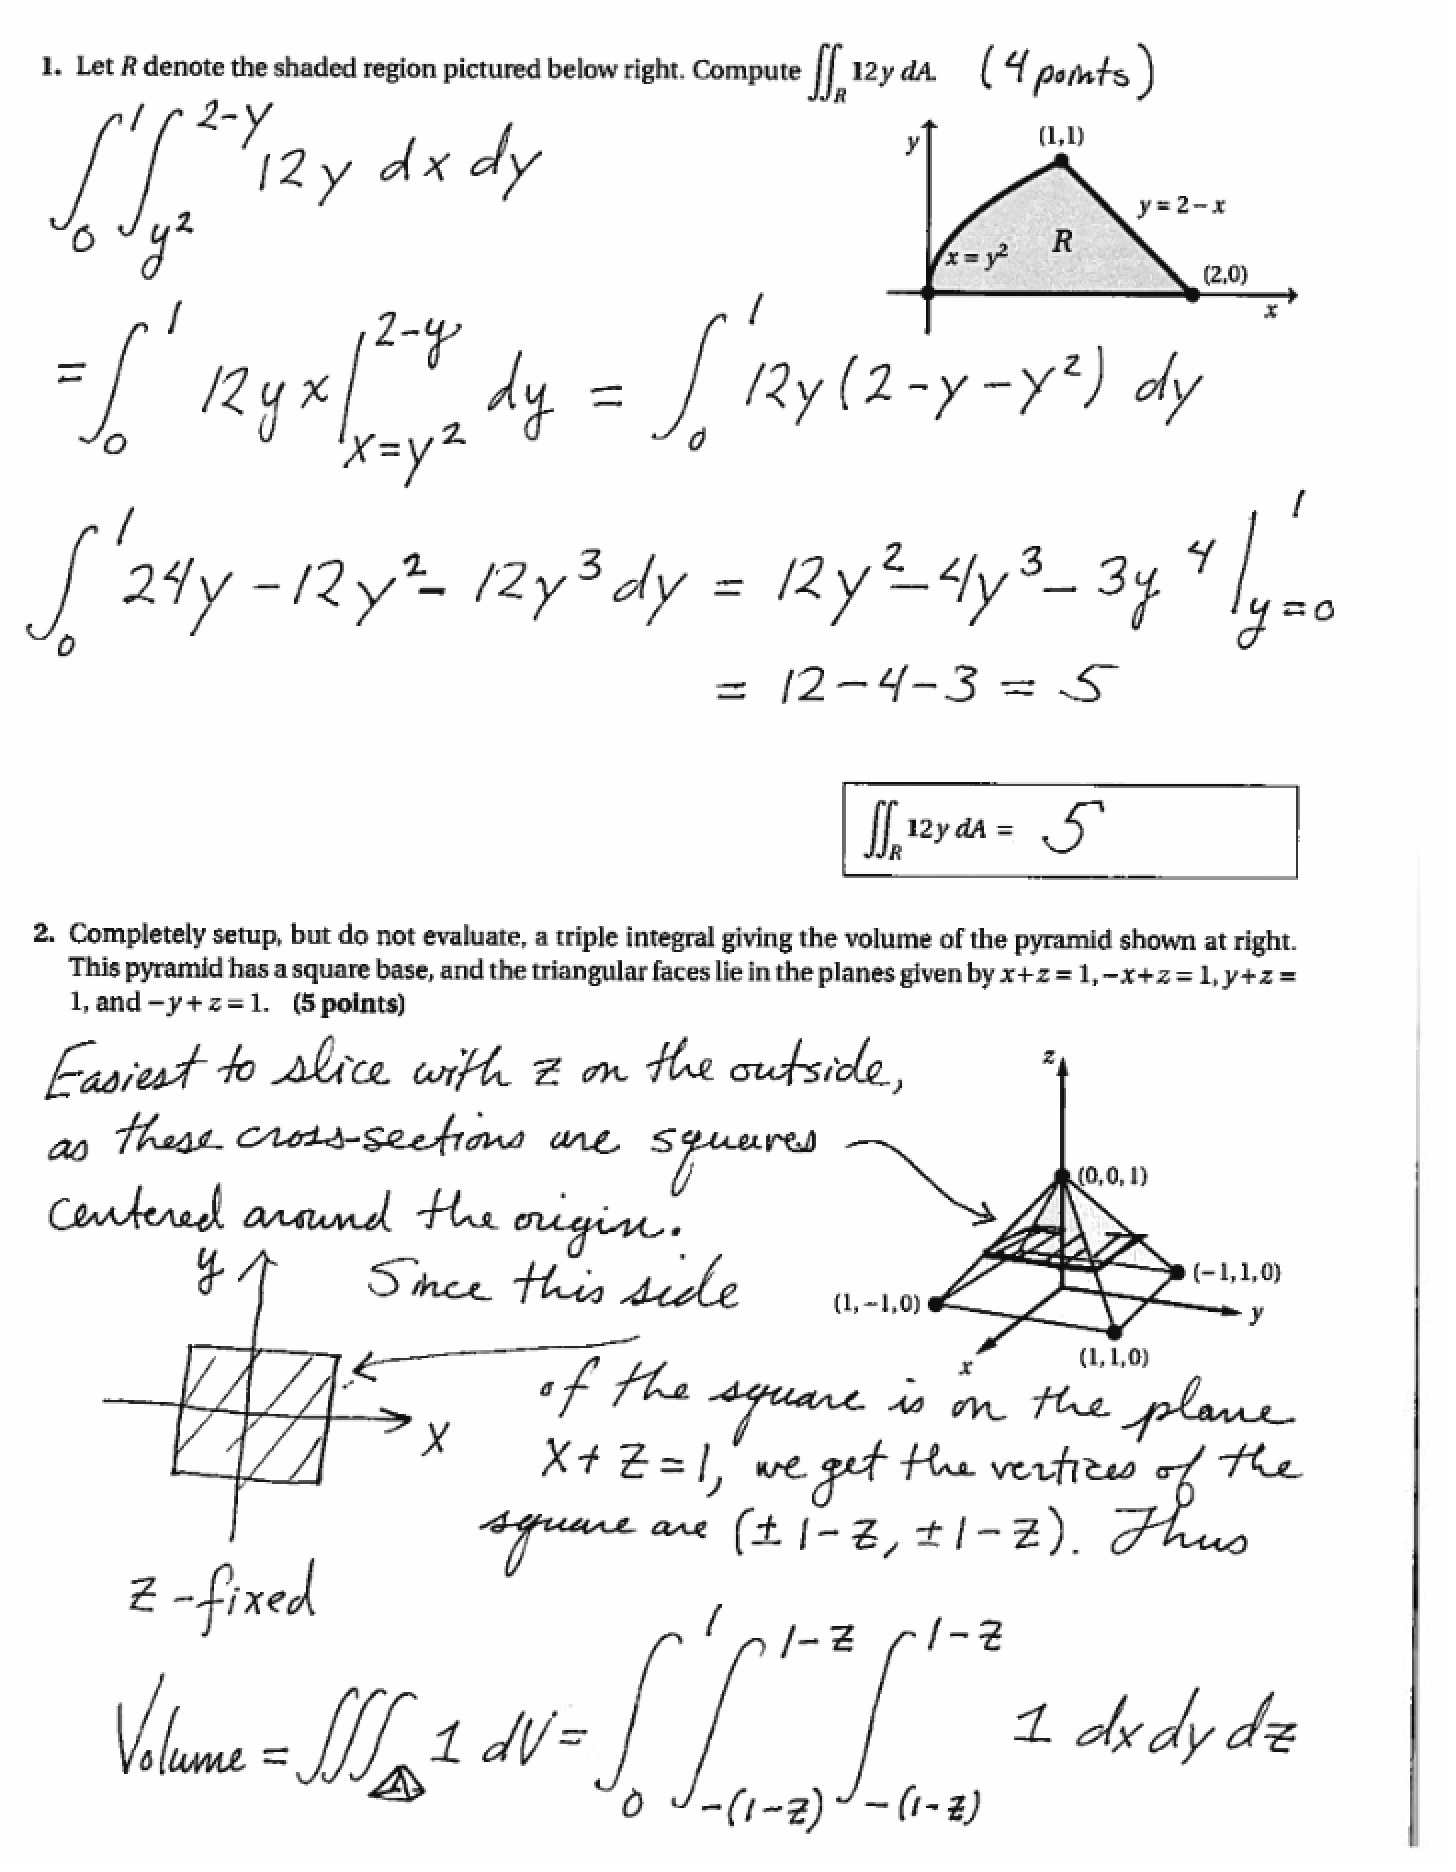 1. Let R denote the shaded region pictured below right. Compute ∬_R 12y dA. (4 points)
∫_0^1 ∫_{y²}^{2-y} 12y dx dy
y
(1,1)
y = 2 − x
x = y²
R
(2,0)
x
= ∫_0^1 12yx |_{x=y²}^{2-y} dy = ∫_0^1 12y(2-y-y²) dy
∫_0^1 24y - 12y² - 12y³ dy = 12y² - 4y³ - 3y⁴ |_{y=0}^1
= 12-4-3 = 5
∬_R 12y dA = 5
2. Completely setup, but do not evaluate, a triple integral giving the volume of the pyramid shown at right.
This pyramid has a square base, and the triangular faces lie in the planes given by x+z = 1, −x+z = 1, y+z =
1, and −y+z = 1. (5 points)
Easiest to slice with z on the outside,
as these cross-sections are squares
centered around the origin.
z
(0,0,1)
(−1,1,0)
(1,−1,0)
y
(1,1,0)
x
y
x
z-fixed
Since this side
of the square is on the plane
x+z=1, we get the vertices of the
square are (±1-z, ±1-z). Thus
Volume = ∭ 1 dV = ∫_0^1 ∫_{-(1-z)}^{1-z} ∫_{-(1-z)}^{1-z} 1 dx dy dz